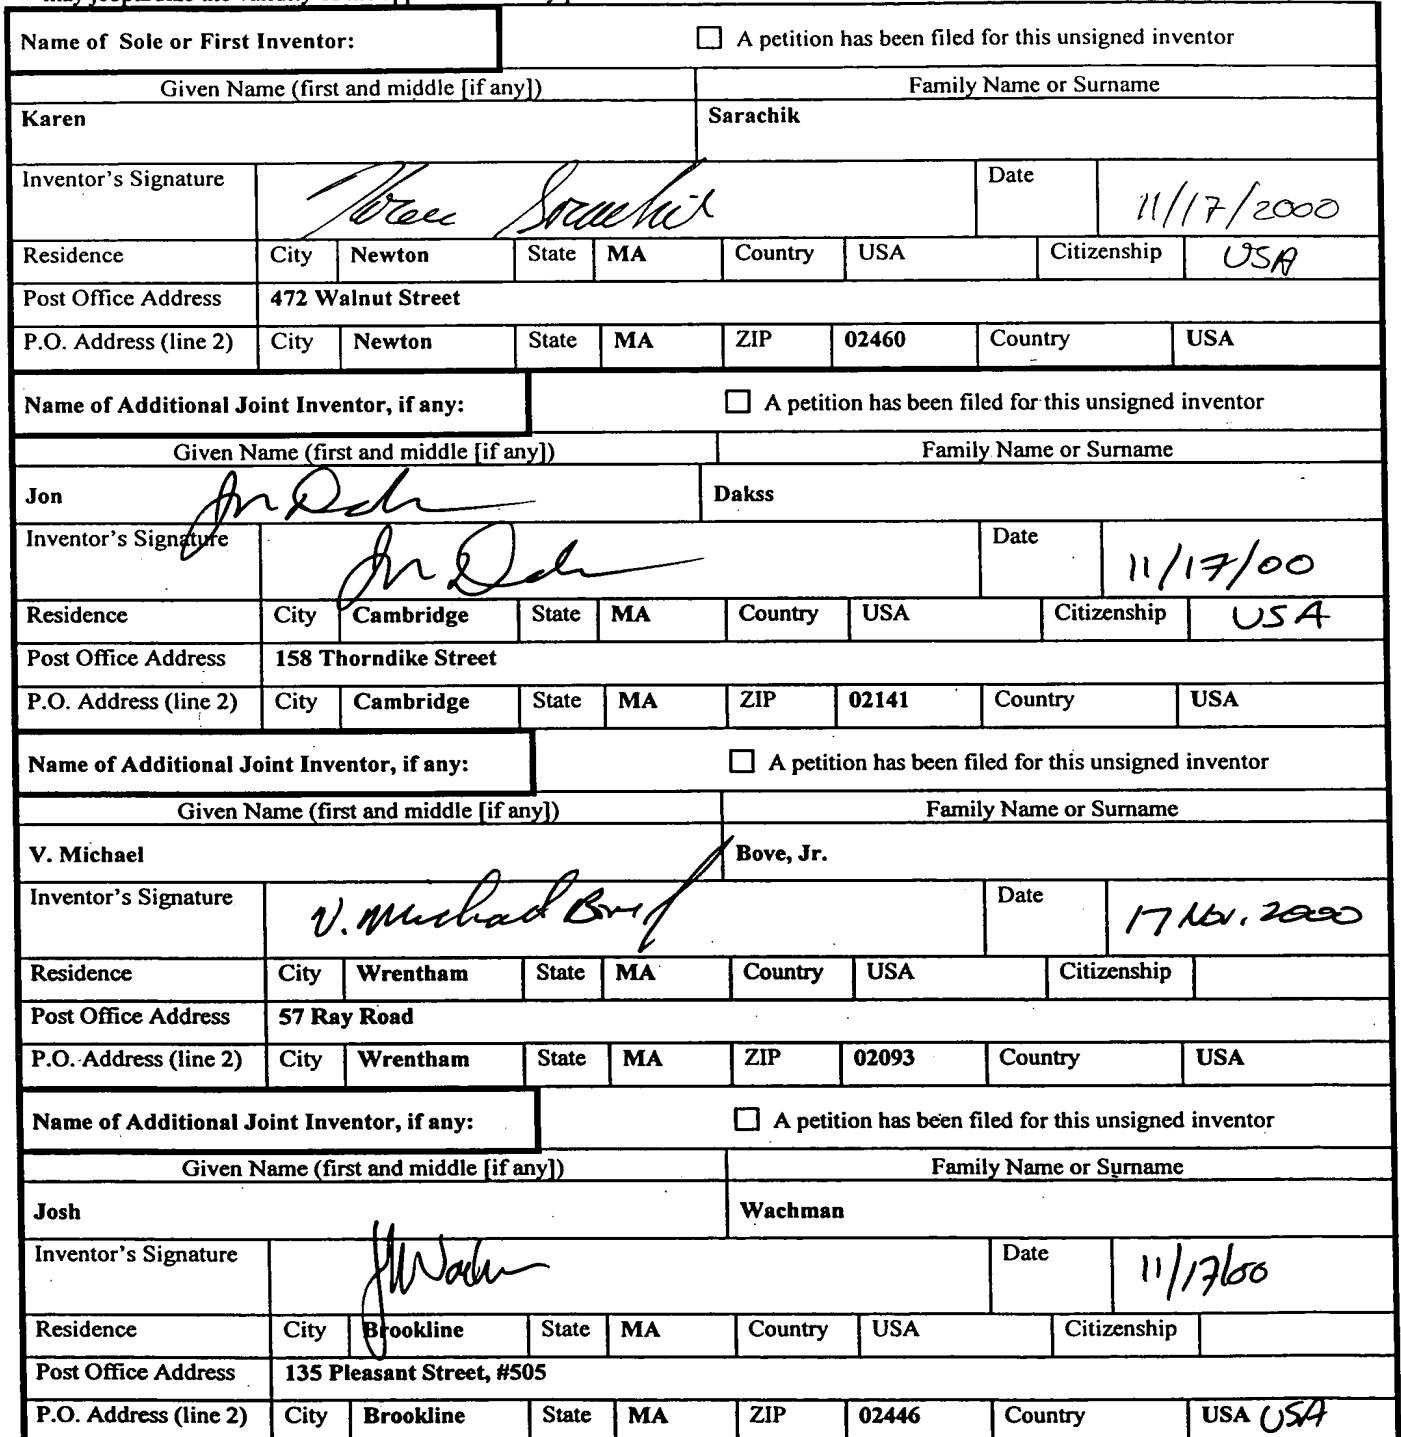 Name of Sole or First Inventor: ☐ A petition has been filed for this unsigned inventor
Given Name (first and middle [if any]) Family Name or Surname
Karen Sarachik
Inventor's Signature Karen Sarachik Date 11/17/2000
Residence City Newton State MA Country USA Citizenship USA
Post Office Address 472 Walnut Street
P.O. Address (line 2) City Newton State MA ZIP 02460 Country USA
Name of Additional Joint Inventor, if any: ☐ A petition has been filed for this unsigned inventor
Given Name (first and middle [if any]) Family Name or Surname
Jon Dakss
Inventor's Signature Date 11/17/00
Residence City Cambridge State MA Country USA Citizenship USA
Post Office Address 158 Thorndike Street
P.O. Address (line 2) City Cambridge State MA ZIP 02141 Country USA
Name of Additional Joint Inventor, if any: ☐ A petition has been filed for this unsigned inventor
Given Name (first and middle [if any]) Family Name or Surname
V. Michael Bove, Jr.
Inventor's Signature V. Michael Bove Jr Date 17 Nov. 2000
Residence City Wrentham State MA Country USA Citizenship
Post Office Address 57 Ray Road
P.O. Address (line 2) City Wrentham State MA ZIP 02093 Country USA
Name of Additional Joint Inventor, if any: ☐ A petition has been filed for this unsigned inventor
Given Name (first and middle [if any]) Family Name or Surname
Josh Wachman
Inventor's Signature Date 11/17/00
Residence City Brookline State MA Country USA Citizenship
Post Office Address 135 Pleasant Street, #505
P.O. Address (line 2) City Brookline State MA ZIP 02446 Country USA USA